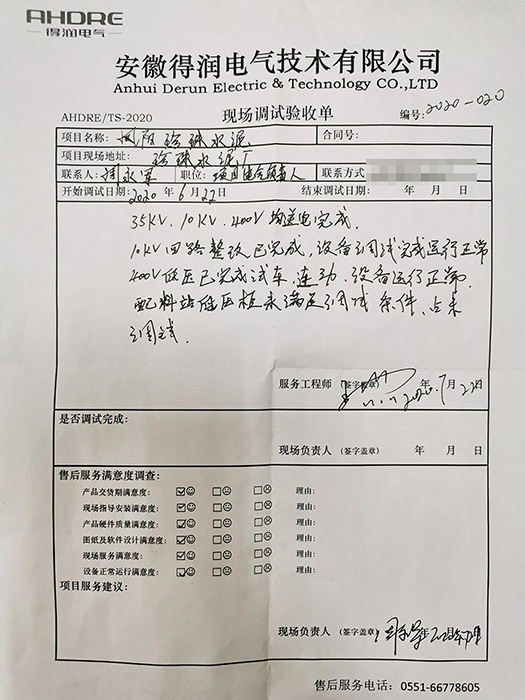 AHDRE
得润电气
安徽得润电气技术有限公司
Anhui Derun Electric & Technology CO.,LTD
AHDRE/TS-2020 现场调试验收单 编号: 2020-020
项目名称: 凤阳珍珠水泥 合同号:
项目现场地址: 珍珠水泥厂
联系人: 职位: 项目电气负责人 联系方式
开始调试日期: 2020 年 6 月 22日 结束调试日期: 年 月 日
35KV. 10KV. 400V 均送电完成.
10KV 回路整改已完成, 设备调试完成运行正常
400V低压已完成试车, 连动, 设备运行正常.
配料站低压柜未满足调试条件,
调试.
服务工程师 (签字盖章) 2020年7月22日
是否调试完成:
现场负责人 (签字盖章) 年 月 日
售后服务满意度调查:
产品交货期满意度: 理由:
现场指导安装满意度: 理由:
产品硬件质量满意度: 理由:
图纸及软件设计满意度: 理由:
现场服务满意度: 理由:
设备正常运行满意度: 理由:
项目服务建议:
现场负责人 (签字盖章)
售后服务电话: 0551-66778605